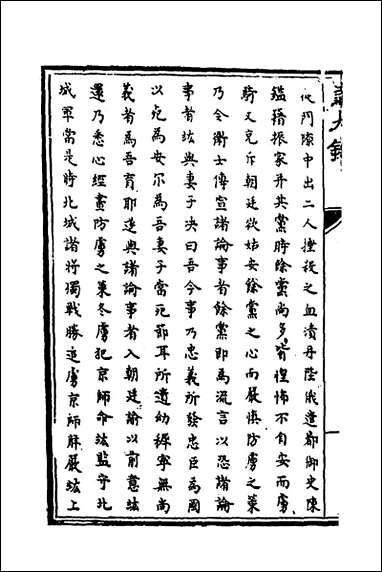 從門隙中出二人捶殺之血漬丹陛俄遣都御史陳
鑑籍振家并其黨時餘黨尚多皆惶怖不自安而虜
騎又充斥朝廷欲姑安餘黨之心而嚴慎防虜之策
乃令衛士傳宣諸論事者餘黨即為流言以恐諸論
事者竑與妻子決曰吾今事乃忠義所發忠臣為國
以死為安爾為吾妻子當死節耳所遺幼稺寧無尚
義者為吾育耶遂與諸論事者入朝廷諭以前意竑
還乃悉心經畫防虜之策冬虜犯京師命竑監守北
城軍當是時北城諸將獨戰勝追虜京師解嚴竑上